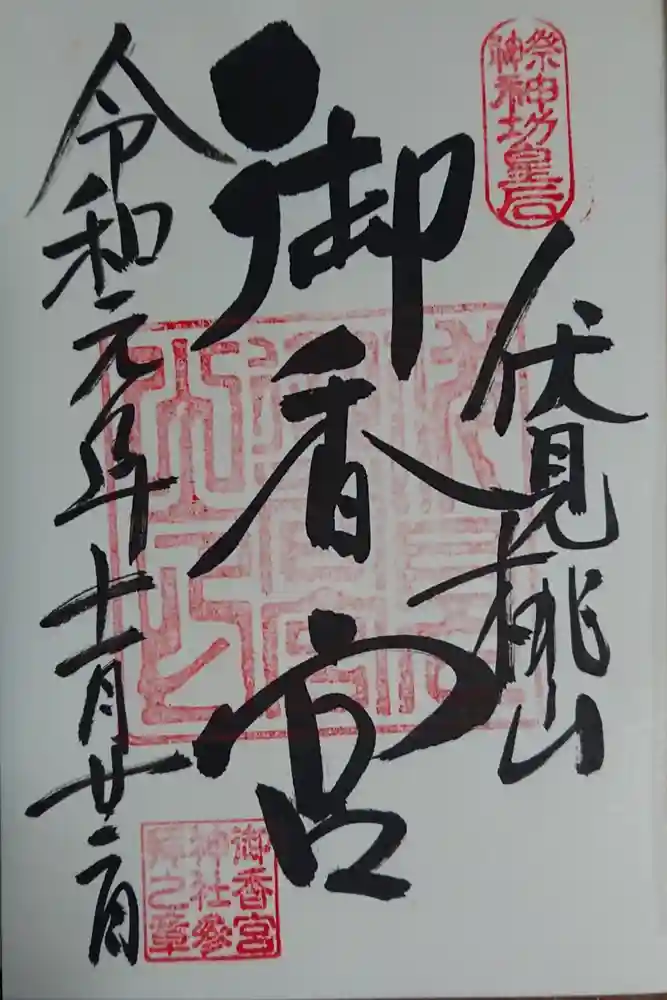 祭神
神功皇后
伏見桃山
御香宮
令和元年十一月廿二日
御香宮
神社参
拝之章